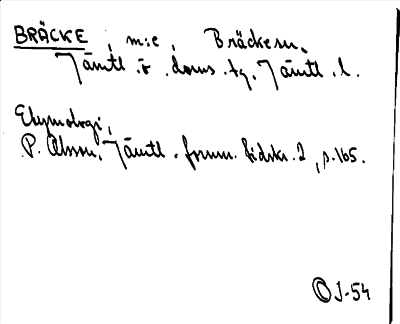 BRÄCKE, m:e, Bräckesn.
Jämtl. ö. doms. tg. Jämtl. l.
Etymologi,
P. Olsson, Jämtl. fornm. tidskr. 2, s. 165.
OJ-54